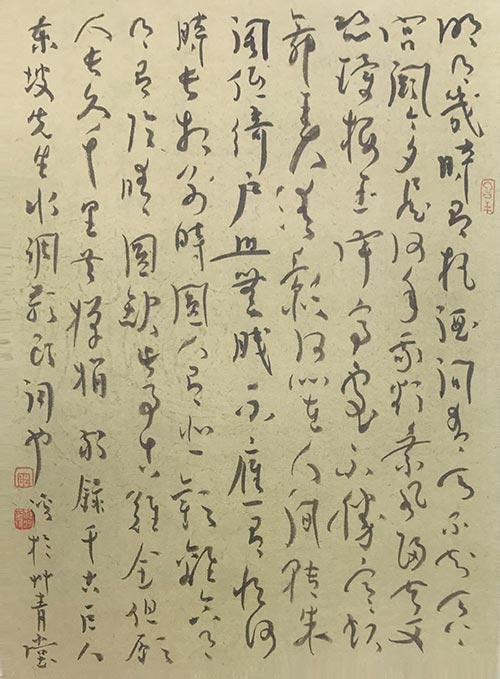 明月幾時有把酒問青天不知天上
宮闕今夕是何年我欲乘風歸去又
恐瓊樓玉宇高處不勝寒起
舞弄清影何似在人間轉朱
閣低綺戶照無眠不應有恨何
時長向別時圓人有悲歡離合
月有陰晴圓缺此事古難全但願
人長久千里共嬋娟 敬錄千古巨人
東坡先生水調歌頭詞也 於艸青堂